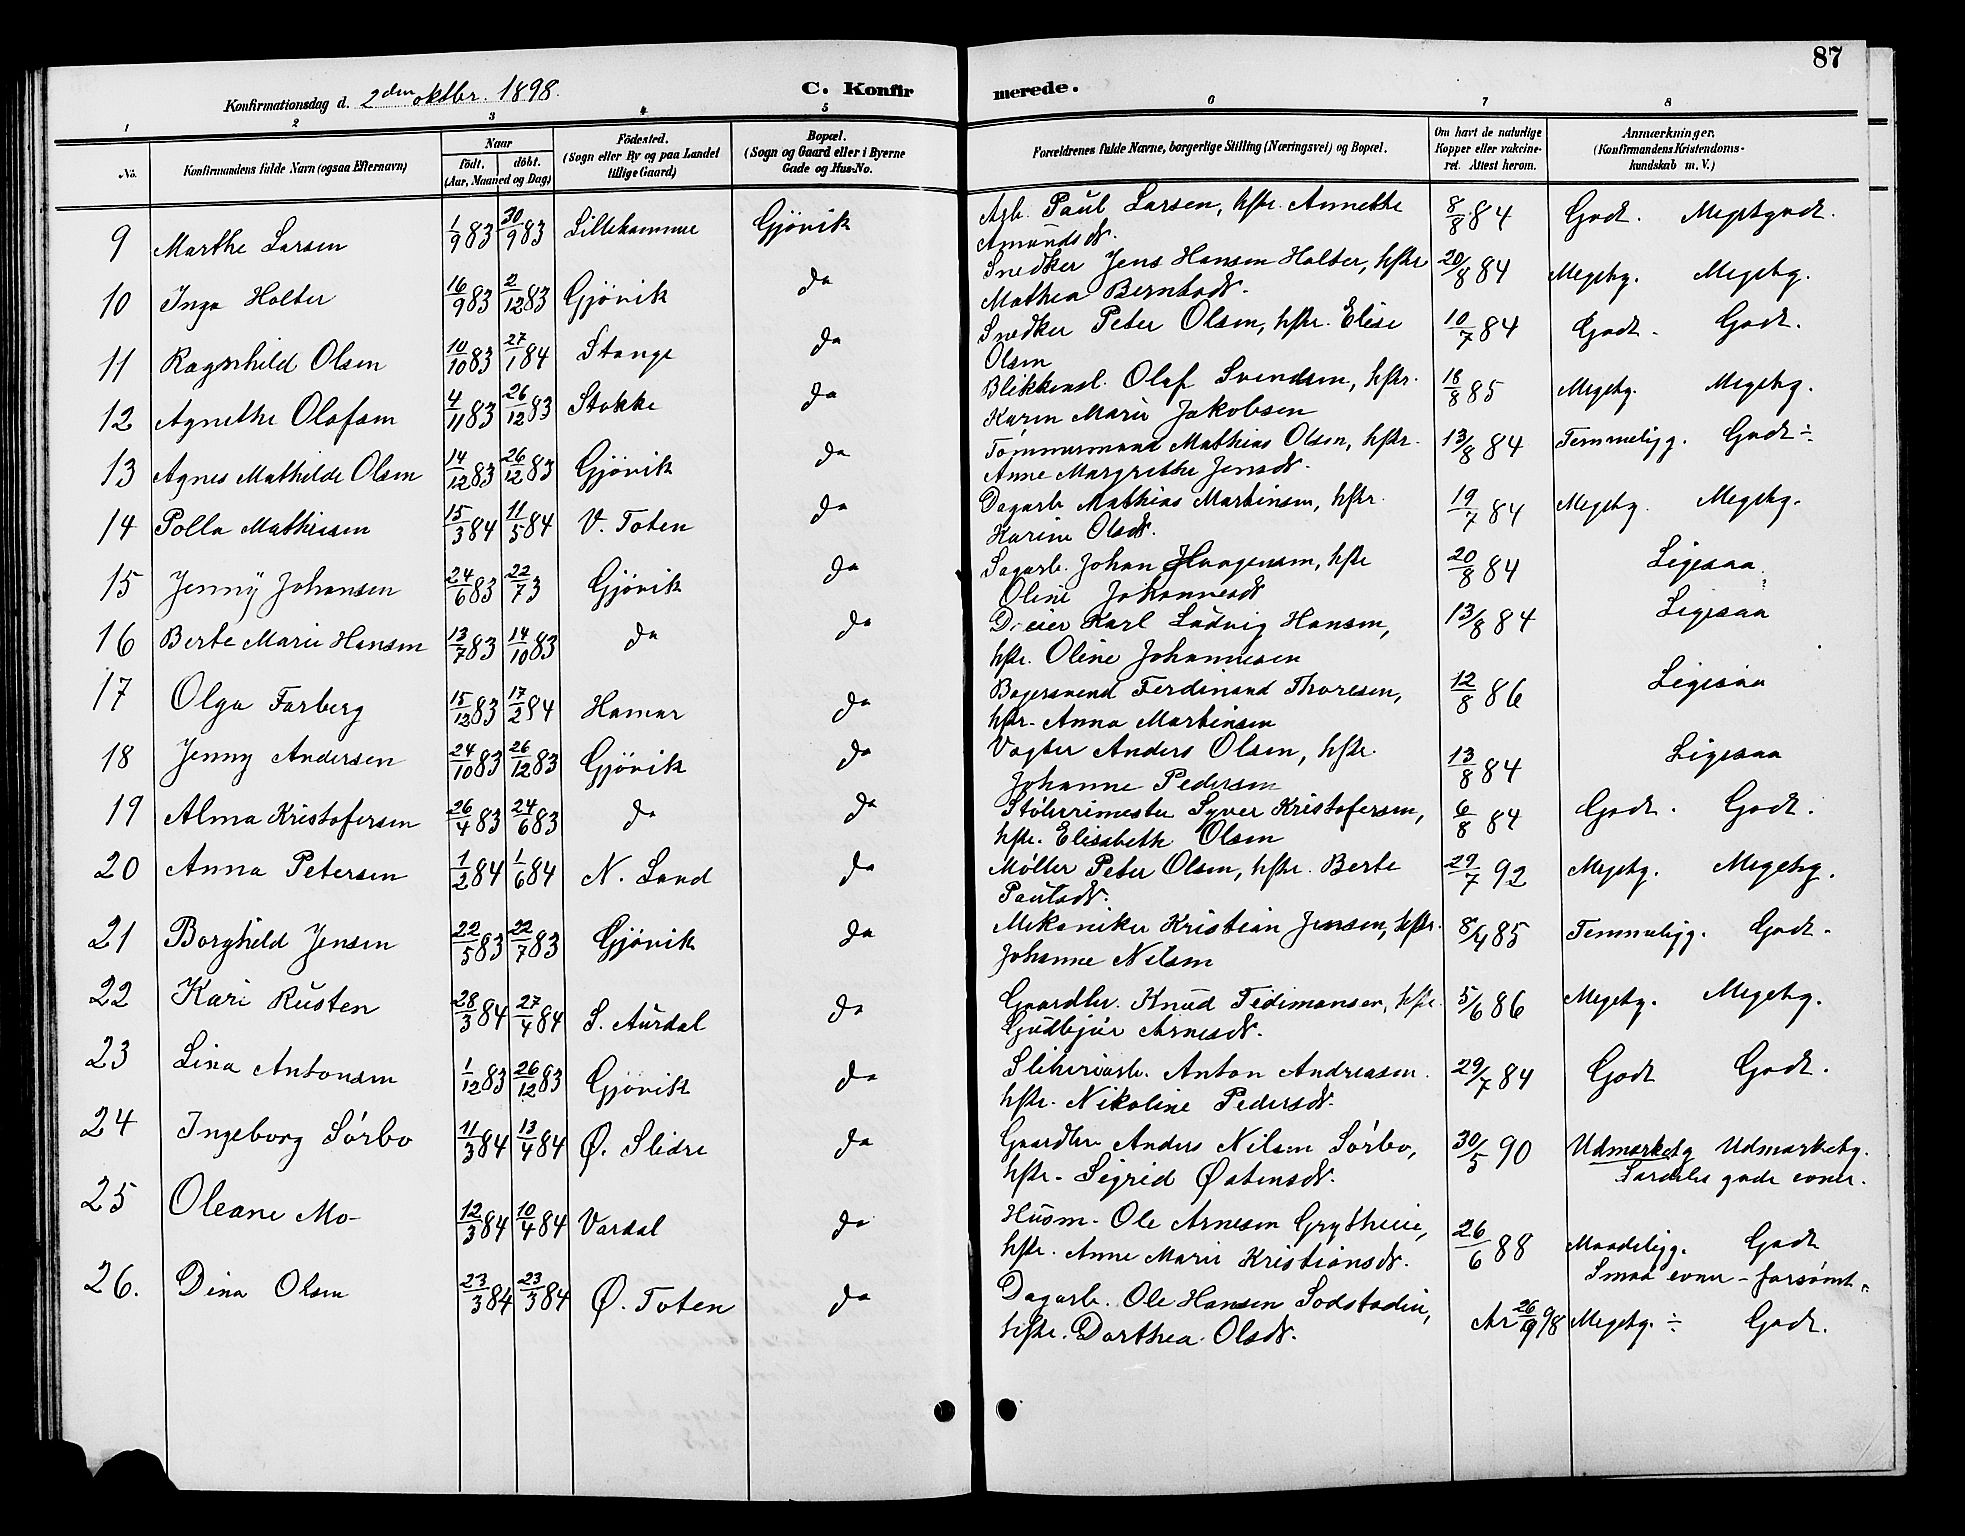 87
Konfirmationsdag d. 2den oktbr. 1898. C. Konfirmerede.
1 2 3 4 5 6 7 8
No. Konfirmandens fulde Navn (ogsaa Efternavn) Naar födt, döbt. (Aar, Maaned og Dag) Födested. (Sogn eller By og paa Landet tillige Gaard) Bopæl. (Sogn og Gaard eller i Byerne Gade og Hus-No. Forældrenes fulde Navne, borgerlige Stilling (Næringsvei) og Bopæl. Om havt de naturlige Kopper eller vakcineret. Attest herom. Anmærkninger. (Konfirmandens Kristendomskundskab m. V.)
9 Marthe Larsen 1/9 83 30/9 83 Lillehammer Gjövik Arb. Paul Larsen, hstr. Annethe 8/8 84 Godt. Megetgodt.
Amundsdt.
10 Inga Holter 16/9 83 2/12 83 Gjövik do Snedker Jens Hansen Holter, hstr 20/8 84 Megetg. Megetg.
Mathea Berntsdt.
11 Ragnhild Olsen 10/10 83 27/1 84 Stange do Snedker Peter Olsen, hstr. Elise 10/7 84 Godt. Godt.
Olsen
12 Agnethe Olafsen 4/11 83 26/12 83 Stokke do Blikkensl. Olaf Svendsen, hstr. 18/8 85 Megetg. Megetg.
Karen Marie Jakobsen
13 Agnes Mathilde Olsen 14/12 83 26/12 83 Gjövik do Tømmermand Mathias Olsen, hstr. 13/8 84 Temmeligg. Godt ÷
Anne Margrethe Jensdt.
14 Polla Mathiesen 15/3 84 11/5 84 V. Toten do Dagarb Mathias Martinsen, hstr. 19/7 84 Megetg. Megetg.
Karine Olsdt.
15 Jenny Johansen 24/6 83 22/7 3 Gjövik do Sagarb. Johan Haagensen, hstr 20/8 84 Ligesaa
Oline Johannesdt
16 Berte Marie Hansen 13/7 83 14/10 83 do do Dreier Karl Ludvig Hansen, 13/8 84 Ligesaa
hstr. Oline Johannesen
17 Olga Farberg 15/12 83 17/2 84 Hamar do Bagersvend Ferdinand Thoresen, 12/8 86 Ligesaa
hstr. Anna Martinsen
18 Jenny Andersen 24/10 83 26/12 83 Gjövik do Vagter Anders Olsen, hstr. 13/8 84 Ligesaa
Johanne Pedersen
19 Alma Kristofersen 26/4 83 24/6 83 do do Syver Kristofersen, 6/8 84 Godt. Godt.
hstr. Elisabeth Olsen
20 Anna Petersen 1/2 84 1/6 84 N. Land do Møller Peter Olsen, hstr. Berte 29/7 92 Megetg. Megetg.
Paulsdt.
21 Borghild Jensen 22/5 83 22/7 83 Gjövik do Mekaniker Kristian Jensen, hstr. 8/4 85 Temmeligg. Godt.
Johanne Nilsen
22 Kari Rusten 28/3 84 27/4 84 S. Aurdal do Gaardbr. Knud Tidimansen, hstr. 5/6 86 Megetg. Megetg.
Gudbjör Arnesdt.
23 Lina Antonsen 1/12 83 26/12 83 Gjövik do Sliberiarb. Anton Andreasen 29/7 84 Godt Godt.
hstr. Nikoline Pedersdt.
24 Ingeborg Sørbo 11/3 84 13/4 84 Ø. Slidre do Gaardbr Anders Nilsen Sørbo, 30/5 90 Udmærketg Udmærketg.
hstr. Sigrid Østensdt. Særdeles gode evner.
25 Oleane Mo 12/3 84 10/4 84 Vardal do Husm. Ole Arnesen 26/6 88 Maadeligg. Godt
hstr. Anne Marie Kristiansdt. Smaa evner - forsømt.
26. Dina Olsen 23/3 84 23/3 84 Ø. Toten do Dagarb. Ole Hansen Sodstadeie, Ar 26/9 98 Megetg. ÷ Godt.
hstr. Dorthea Olsdt.